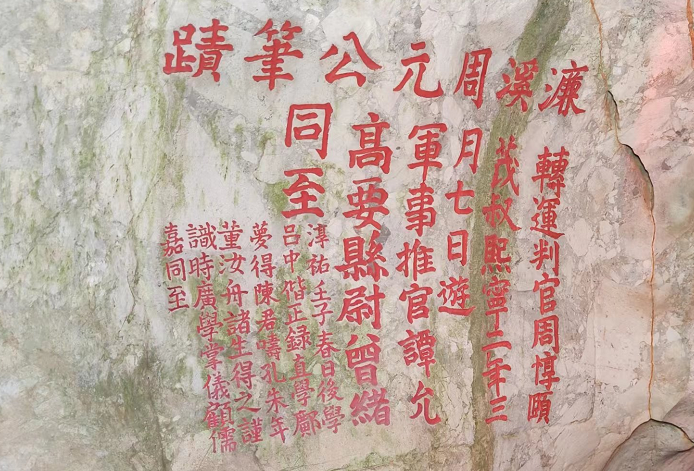 濂溪周元公筆蹟
轉運判官周惇頤
茂叔熙寧二年三
月七日遊
軍事推官譚允
高要縣尉曾緒
同至
淳祐壬子春日後學
呂中偕正録直學鄺
夢得陳君疇孔朱年
董汝舟諸生得之謹
識時廣學掌儀顧儒
嘉同至